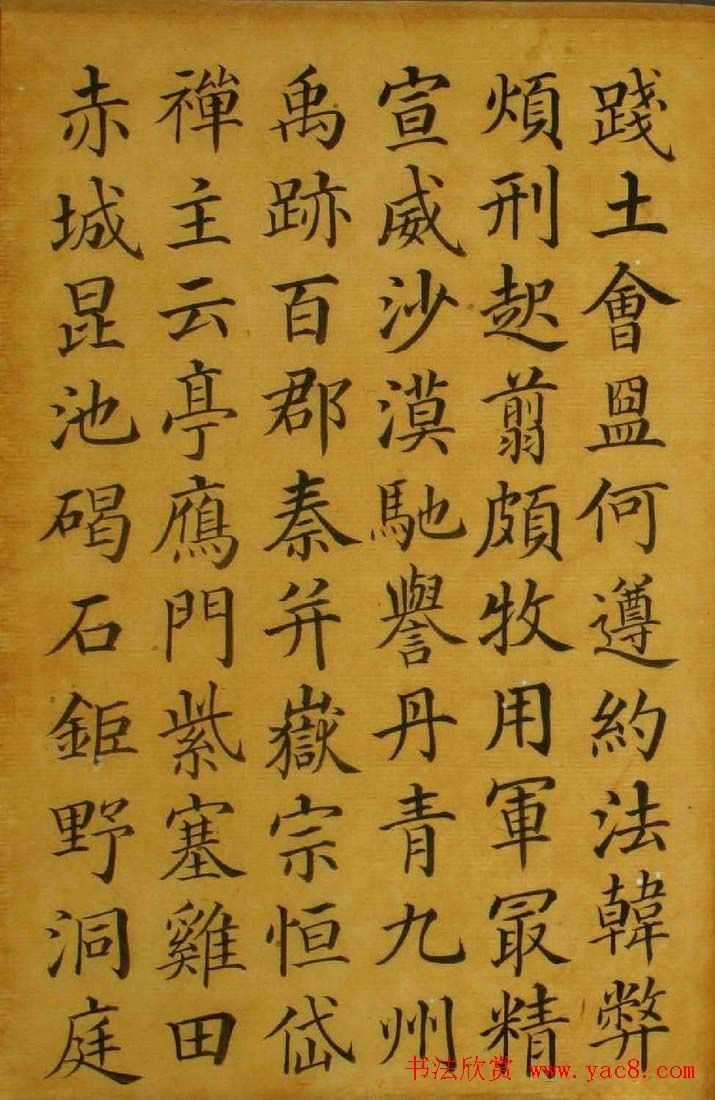 踐土會盟何遵約法韓弊
煩刑起翦頗牧用軍最精
宣威沙漠馳譽丹青九州
禹跡百郡秦并嶽宗恒岱
禪主云亭鴈門紫塞雞田
赤城昆池碣石鉅野洞庭
书法欣赏 www.yac8.com